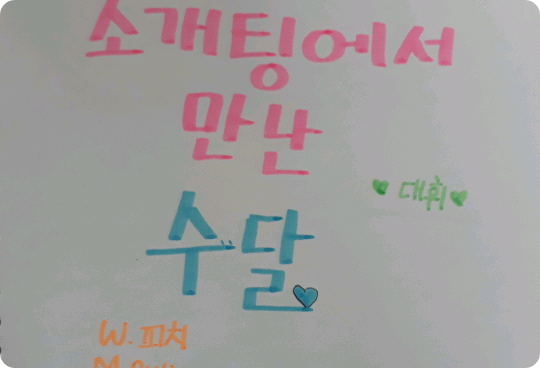 소개팅에서
만난
♥ 대휘 ♥
수달
W. 피치